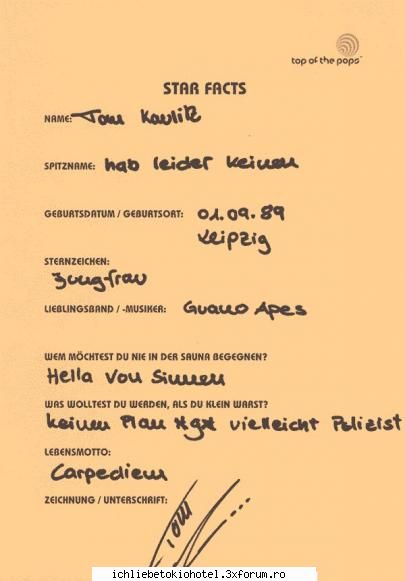 top of the pops
STAR FACTS
NAME: Tom Kaulitz
SPITZNAME: hab leider keinen
GEBURTSDATUM / GEBURTSORT: 01.09.89
Leipzig
STERNZEICHEN:
Jungfrau
LIEBLINGSBAND / -MUSIKER: Guano Apes
WEM MÖCHTEST DU NIE IN DER SAUNA BEGEGNEN?
Hella von Sinnen
WAS WOLLTEST DU WERDEN, ALS DU KLEIN WARST?
keinen Plan vielleicht Polizist
LEBENSMOTTO:
Carpediem
ZEICHNUNG / UNTERSCHRIFT:
Tom
ichliebetokiohotel.3xforum.ro